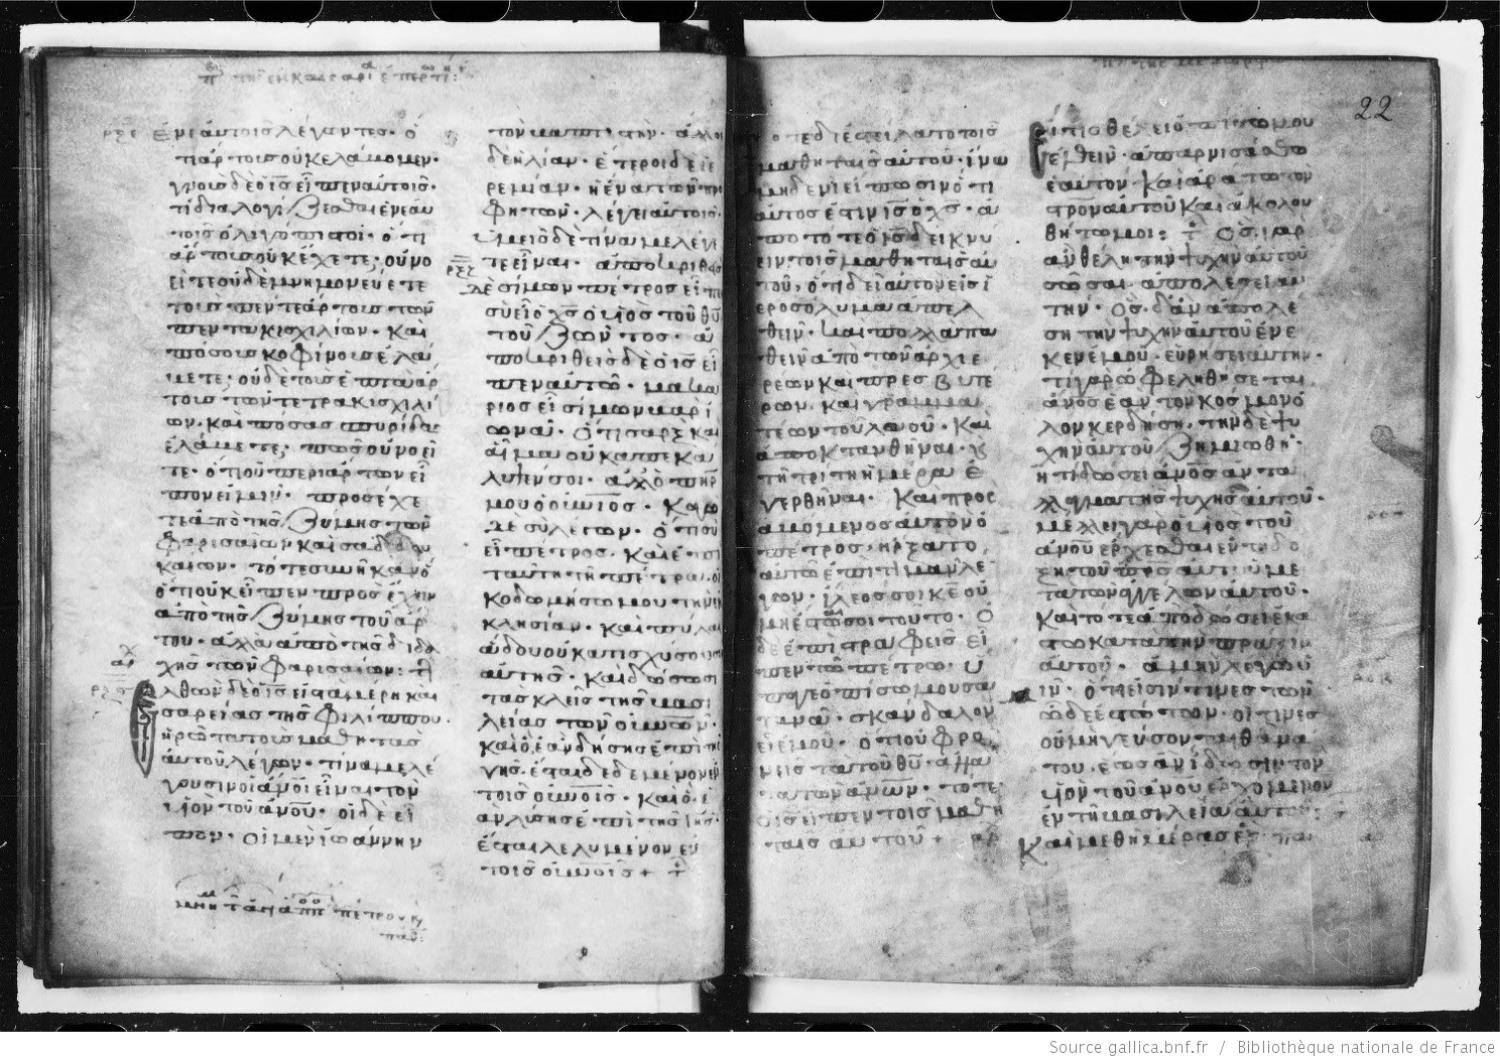 ἑαυτοῖς λέγοντες· ὁ
τι ἄρτους οὐκ ἐλάβομεν·
γνοὺς δὲ ὁ ις εἶπεν αὐτοῖς·
τί διαλογίζεσθαι ἐν ἑαυ
τοῖς ὀλιγόπιστοι· ὅτι
ἄρτους οὐκ ἔχετε; οὔπο
εἶτε οὐδὲ μνημονεύετε
τοὺς πέντε ἄρτους τῶν
πεντακισχιλίων· καὶ
πόσους κοφίνους ἐλά
βετε; οὐδὲ τοὺς ἑπτὰ ἄρ
τους τῶν τετρακισχιλί
ων· καὶ πόσας σπυρίδας
ἐλάβετε; πῶς οὐ νοεῖ
τε· ὅτι οὐ περὶ ἄρτων εἶ
πον εἰμῖν· προσέχε
τε ἀπὸ τῆς ζύμης τῶν
φαρισαίων καὶ σαδδου
καίων· τότε συνῆκαν ὁ
ὅτι οὐκ εἶπεν προσέχειν
ἀπὸ τῆς ζύμης τοῦ ἄρ
του· ἀλλὰ ἀπὸ τῆς διδα
χῆς τῶν φαρισαίων:
Ελθὼν δὲ ὁ ις εἰς τὰ μέρη και
σαρείας τῆς φιλίππου·
ἠρώτα τοὺς μαθητὰς
αὐτοῦ λέγων· τίνα με λέ
γουσιν οἱ ἄνοι εἶναι τὸν
υἱὸν τοῦ ἀνου· οἱ δὲ εἶ
πον· οἱ μὲν ἰωάννην
τὸν βαπτιστήν· ἄλλοι
δὲ ηλίαν· ἕτεροι δὲ ἱε
ρεμίαν· ἢ ἕνα τῶν προ
φητῶν· λέγει αὐτοῖς·
ὑμεῖς δὲ τίνα με λέγε
τε εἶναι· ἀποκριθεὶς
δὲ σίμων πέτρος εἶπε
σὺ εἶ ὁ χς ὁ υἱὸς τοῦ θυ
τοῦ ζῶντος· ἀ
ποκριθεὶς δὲ ὁ ις εἶ
πεν αὐτῶ· μακά
ριος εἶ σίμων βαρὶ
ωνᾶ· ὅτι σὰρξ καὶ
αἷμα οὐκ ἀπεκά
λυψέν σοι· ἀλλ' ὁ πηρ
μου ὁ ουνιος· Καγὼ
δὲ σὺ λέγων· ὅτι σὺ
εἶ πέτρος· καὶ ἐπὶ
ταύτη τῆ πέτρα· οἰ
κοδωμήσω μου τὴν ἐκ
κλησίαν· καὶ πύλαι
ἅδου οὐ κατισχύσουσιν
αὐτῆς· Καὶ δώσω σοι
τὰς κλεῖς τῆς βασι
λείας τῶν ουνων·
καὶ ὃ ἐὰν δήσης ἐπὶ τῆς
γῆς· ἔσται δεδεμένον ἐν
τοῖς ουνοις· καὶ ὃ ἐ
ὰν λύσης ἐπὶ τῆς γῆς·
ἔσται λελυμένον ἐν
τοῖς ουνοις +
22
τότε διέστειλατο τοῖς
μαθηταῖς αὐτοῦ· ἵνα
μηδενὶ εἴπωσιν ὅτι
αὐτός ἐστιν ις ὁ χς· ἀ
πὸ τότε ὁ ις δεικνύ
ειν τοῖς μαθηταῖς αὐ
τοῦ, ὅτι δεῖ αὐτὸν εἰς ἱ
εροσόλυμα ἀπελ
θεῖν· καὶ πολλὰ πα
θεῖν ἀπὸ τῶν ἀρχιε
ρέων καὶ πρεσβυτέ
ρων· καὶ γραμμα
τέων τοῦ λαοῦ· Καὶ
ἀποκτανθῆναι· κ
τῆ τρίτη ἡμέρα ἐ
γερθῆναι· Καὶ προσ
λαβόμενος αὐτὸν ὁ
πέτρος· ἤρξατο
αὐτῶ ἐπιτιμᾶν λέ
γων· ἵλεός σοι κε οὐ
μὴ ἔσται σοι τοῦτο· Ὁ
δὲ ἐπιστραφεὶς εἶ
πεν τῶ πέτρω· ὕ
παγε ὀπίσω μου σα
τανᾶ· σκάνδαλον
εἶ ἐμοῦ· ὅτι οὐ φρο
νεῖς τὰ τοῦ θυ· ἀλλὰ
τὰ τῶν ἀνων· τότε
ὁ ις εἶπεν τοῖς μαθη
ταῖς αὐτοῦ +
Εἴ τις θέλει ὀπίσω μου
ἐλθεῖν· ἀπαρνισάσθω
ἑαυτόν· καὶ ἀράτω τὸν
στρον αὐτοῦ καὶ ἀκολου
θήτω μοι: Ὃς γὰρ
ἂν θέλη τὴν ψυχὴν αὐτοῦ
σῶσαι· ἀπολέσει αὐ
τήν· Ὃς δ' ἂν ἀπολέ
ση τὴν ψυχὴν αὐτοῦ ἕνε
κεν ἐμοῦ· εὑρήσει αὐτήν·
τί γὰρ ὠφεληθήσεται
ἄνος ἐὰν τὸν κόσμον ὅ
λον κερδήση· τὴν δὲ ψυ
χὴν αὐτοῦ ζημιωθῆ·
ἢ τί δώσει ἄνος ἀντάλ
λαγμα τῆς ψυχῆς αὐτοῦ·
μέλλει γὰρ ὁ υἱὸς τοῦ
ἀνου ἔρχεσθαι ἐν τῆ δό
ξη τοῦ πρς αὐτοῦ με
τὰ τῶν ἀγγέλων αὐτοῦ·
Καὶ τότε ἀποδώσει ἑκά
στω κατὰ τὴν πρᾶξιν
αὐτοῦ· ἀμὴν λέγω ὑ
ῖν· ὅτι εἰσίν τινες τῶν
ὧδε ἑστώτων· οἵτινες
οὐ μὴ γεύσονται θανά
του· ἕως ἂν ἴδωσιν τὸν
υἱὸν τοῦ ἀνου ἐρχόμενον
ἐν τῆ βασιλεία αὐτοῦ:
Καὶ μεθ' ἡμέρας ἓξ· πα
Source gallica.bnf.fr / Bibliothèque nationale de France